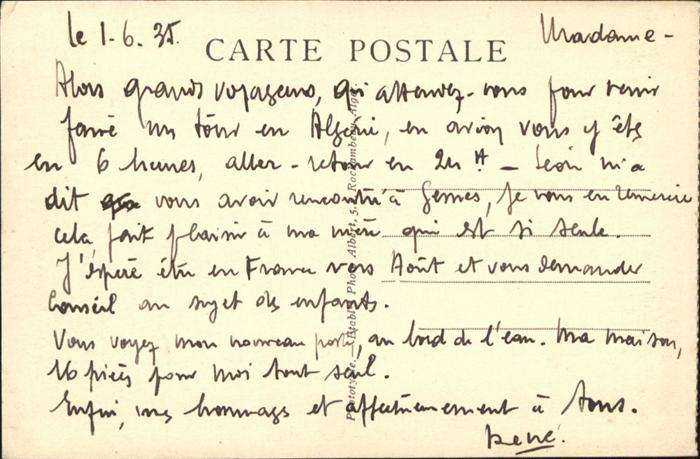 le 1-6. 35.
CARTE POSTALE
Madame -
Alors grands voyageurs, qu'attendez-vous pour venir
faire un tour en Algérie, en avion vous y êtes
en 6 heures, aller-retour en 24 H - Léon m'a
dit vous avoir rencontré à Gennes, je vous en remercie
cela fait plaisir à ma mère qui est si seule.
J'espère être en France vers Août et vous demander
conseil au sujet des enfants.
Vous voyez mon nouveau poste, au bord de l'eau. Ma maison,
16 pièces pour moi tout seul.
Enfin, mes hommages et affectueusement à tous.
René.
Phototypie Etabliss. Photo Albert, 5, Rochambeau, Alger